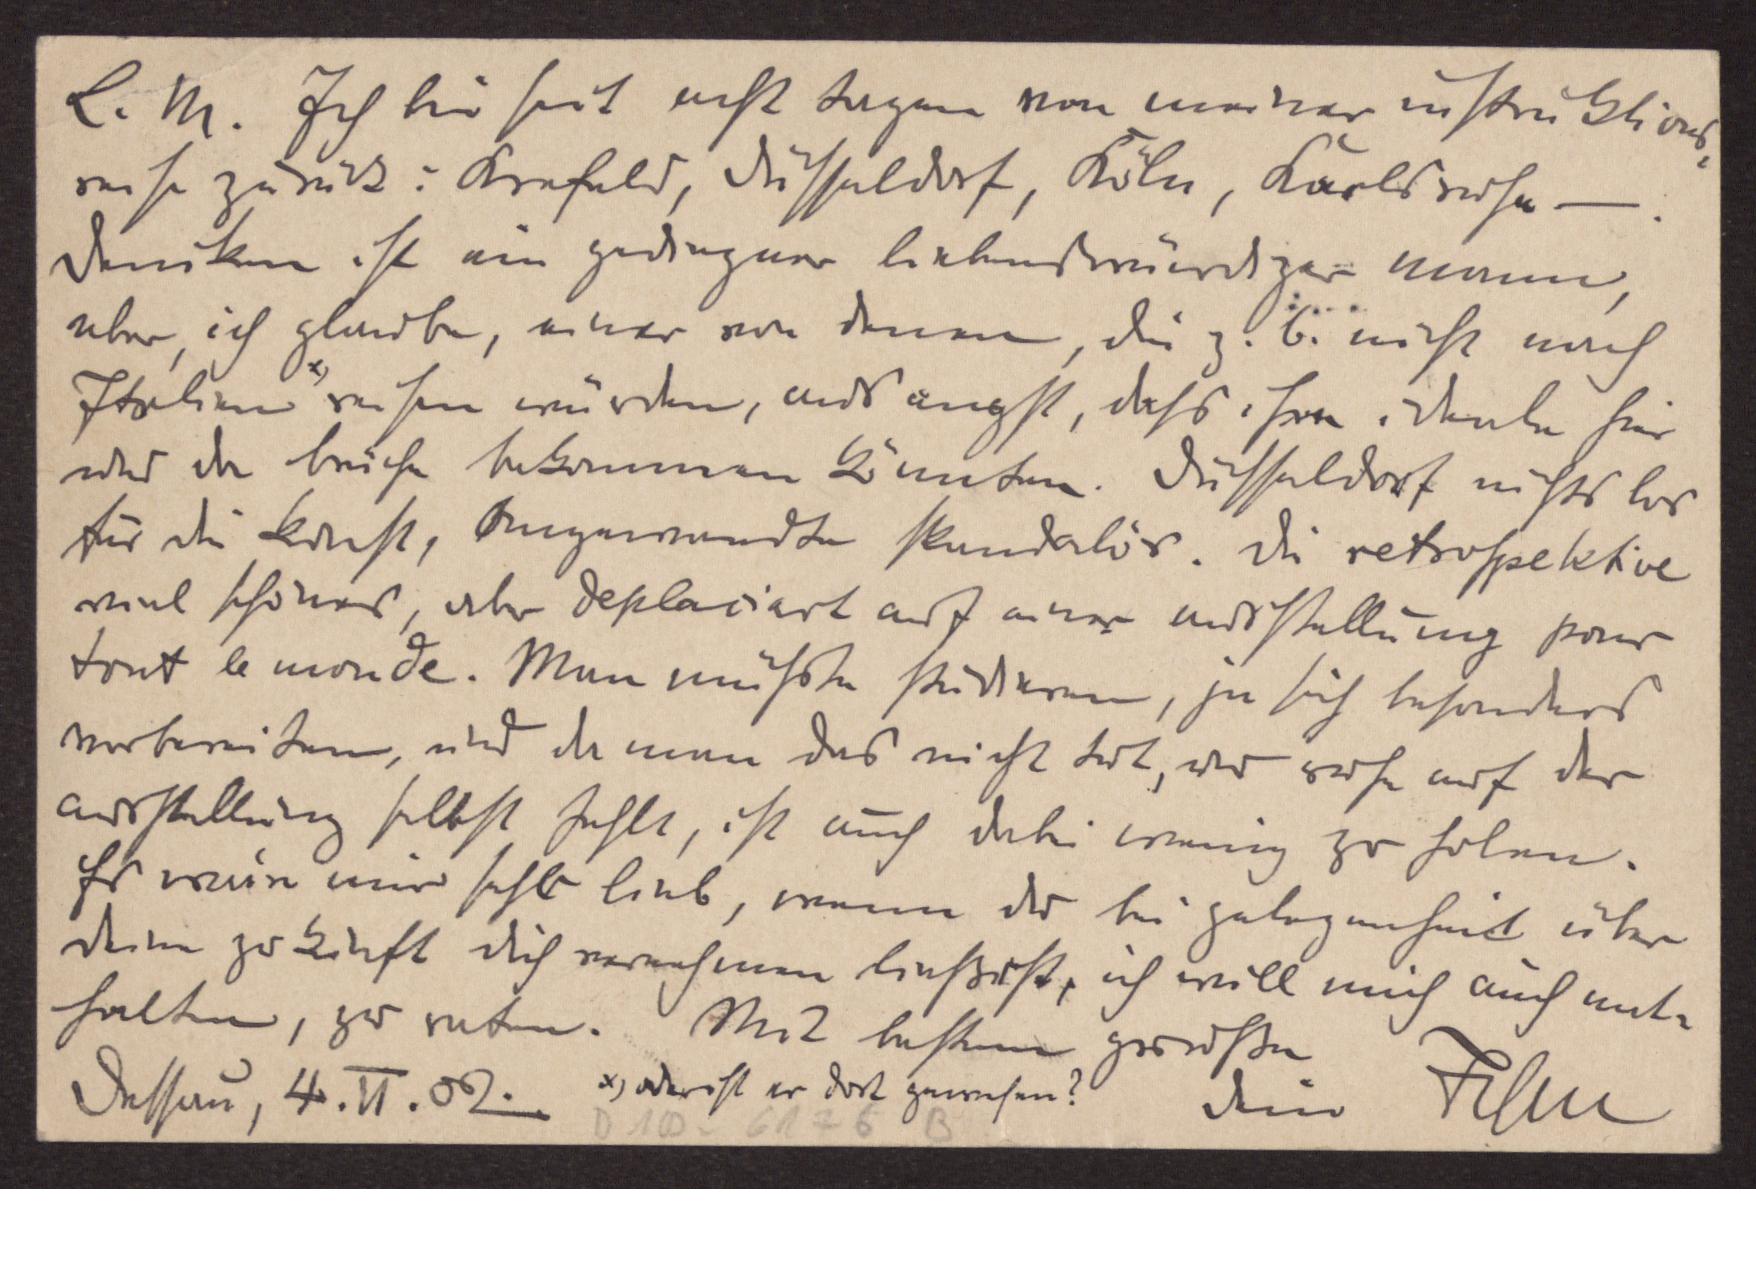 L. M. Ich bin seit acht tagen von meiner instruktions-
reise zurück: Krefeld, Düsseldorf, Köln, Karlsruhe —.
Deneken ist ein gediegner liebenswürdiger mann,
aber, ich glaube, einer von denen, die z. b. nicht nach
Italien x) reisen würden, aus angst, dass ihre ideale hier
und da brüche bekommen könnten. Düsseldorf nichts los
für die kunst, Angewandte skandalös. Die retrospektive
viel schönes, aber deplaciert auf einer ausstellung pour
tout le monde. Man müsste studieren, ja sich besonders
vorbereiten, und da man das nicht tut, und ruhe auf der
ausstellung selbst fehlt, ist auch dabei wenig zu holen.
Es wäre mir sehr lieb, wenn du bei gelegenheit über
deine zukunft dich vernehmen liessest, ich will mich auch ent-
halten, zu raten. Mit besten grüssen
Dessau, 4. VI. 02. x) oder ist er dort gewesen? dein
D 100- 6176 B